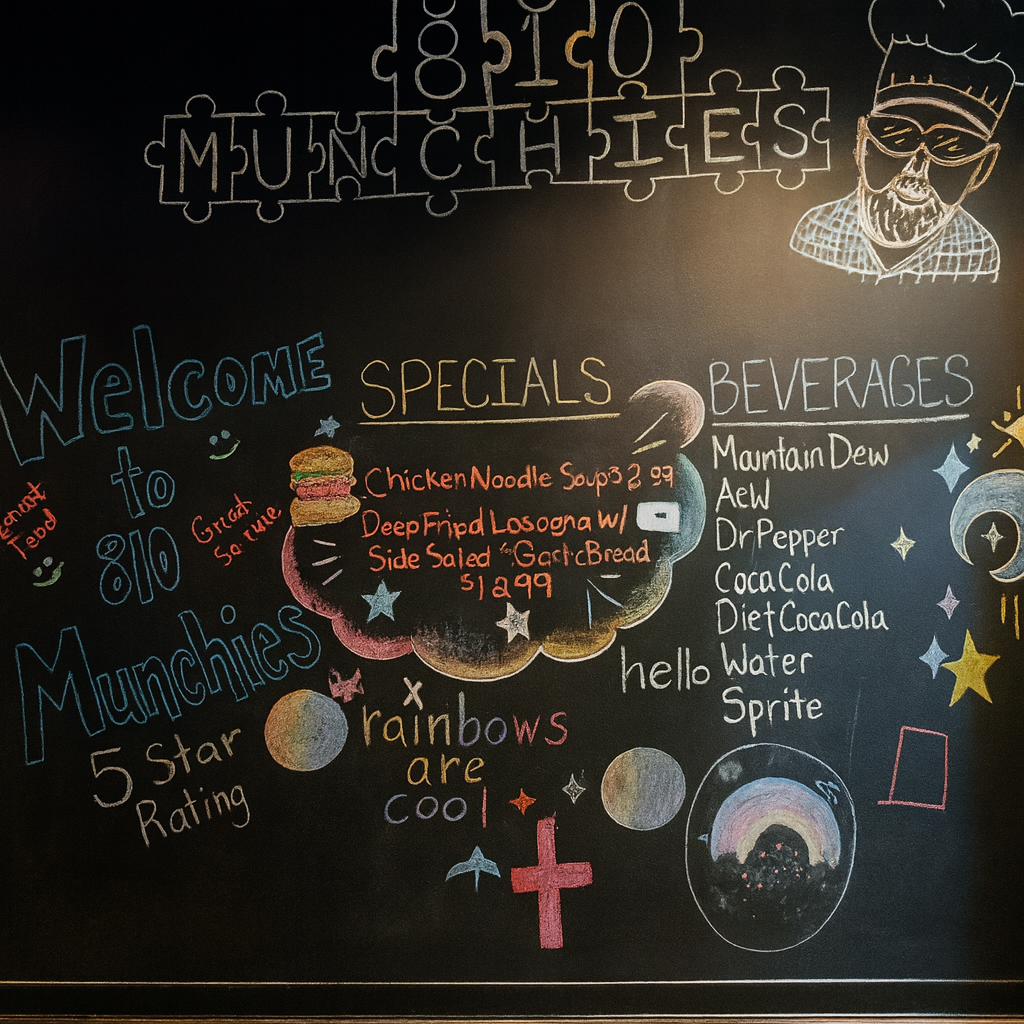 810
MUNCHIES
Welcome
to
810
Munchies
Great
Food
Great
5 Star
Rating
SPECIALS
Chicken Noodle Soup $ 2 99
Deep Fripd Losogna w/
Side Saled Bread
$12 99
BEVERAGES
Mountain Dew
A&W
Dr Pepper
Coca Cola
Diet Coca Cola
Water
Sprite
hello
rainbows
are
cool